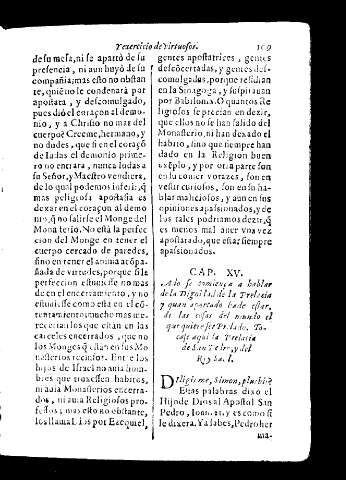 Y exercicio de Virtuosos. 109
de su mesa, ni se apartò de su
presencia, ni aun huyò de su
compañia; mas esto no obstan
te, quien le condenarà por
apostata, y descomulgado,
pues diò el coraçon al demo
nio, y a Christo no mas del
cuerpo? Creeme, hermano, y
no dudes, que si en el coraçõ
de Iudas el demonio prime-
ro no entrara, nunca Iudas a
su Señor, y Maestro vendiera,
de lo qual podemos inferir, q̃
mas peligrosa apostasia es
dexar en el coraçon al demo
nio, q̃ no salirse el Monge del
Monasterio. No està la perfec
cion del Monge en tener el
cuerpo cercado de paredes,
sino en tener el anima acõpa-
ñada de virtudes, porque si la
perfeccion estuuiesse no mas
de en el encerramiento, y no
estuuiesse como està en el cõ-
tentamiento mucho mas me-
recerian los que estàn en las
carceles encerrados, que no
los Monges q̃ estàn en los Mo
nasterios recoletos. Entre los
hijos de Israel no auia hom-
bres que truxessen habitos,
ni auia Monasterios encerra-
dos, ni auia Religiosos pro-
fessos; mas esto no obstante,
los llama Dios por Ezequiel,
gentes apostatrices, gentes
descõcertadas, y gentes des-
comulgadas, porque residian
en la Sinagoga, y suspirauan
por Babilonia. O quantos Re
ligiosos se precian en dezir,
que ellos no se han salido del
Monasterio, ni han dexado el
habito, sino que siempre han
dado en la Religion buen
exẽplo, y por otra parte son
en lo comer vorazes, son en
vestir curiosos, son en su ha-
blar maliciosos, y aun en sus
opiniones apassionados, y de
los tales podriamos dezir, q̃
es menos mal auer vna vez
apostatado, que estar siempre
apassionados.
CAP. XV.
Aqui se comiença a hablar
de la Dignidad de la Prelacia
y quan apartado ha de estar,
de las cosas del mundo el
que quiere ser Prelado. To-
case aqui la Prelacia
de San Pedro, y del
Rey Saul.
Diligis me, Simon, plus his?
Estas palabras dixo el
Hijo de Dios al Apostol San
Pedro, Ioan. 21. y es como si
le dixera. Ya sabes, Pedro her
ma-